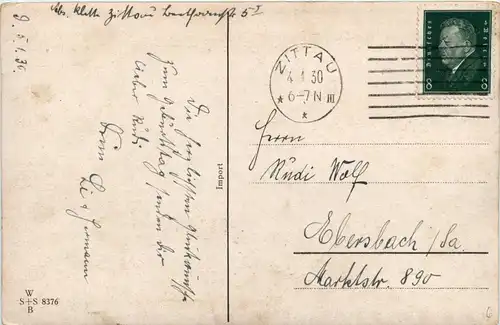 Abs. Klette Zittau Beethovenstr 5 I
9. 5.1.30.
Die herzlichsten Glückwünsche
zum Geburtstag senden Dir
lieber Rudi
Deine
Lie & Hermann
Import
W
S+S 8376
B
ZITTAU
4.1.30
* 6-7N III
*
Deutsches Reich
8 8
Herrn
Rudi Wolf
Ebersbach/Sa.
Marktstr. 890